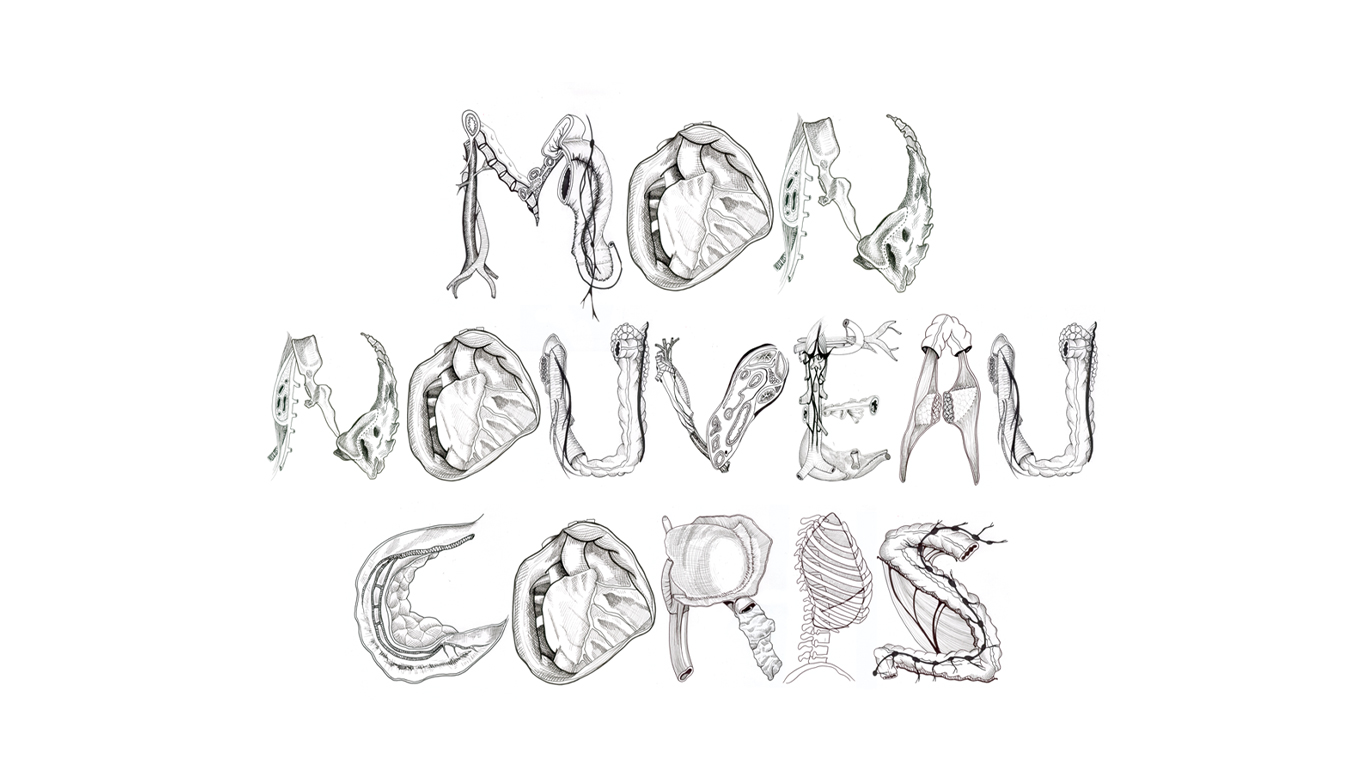 MON
NOUVEAU
CORPS